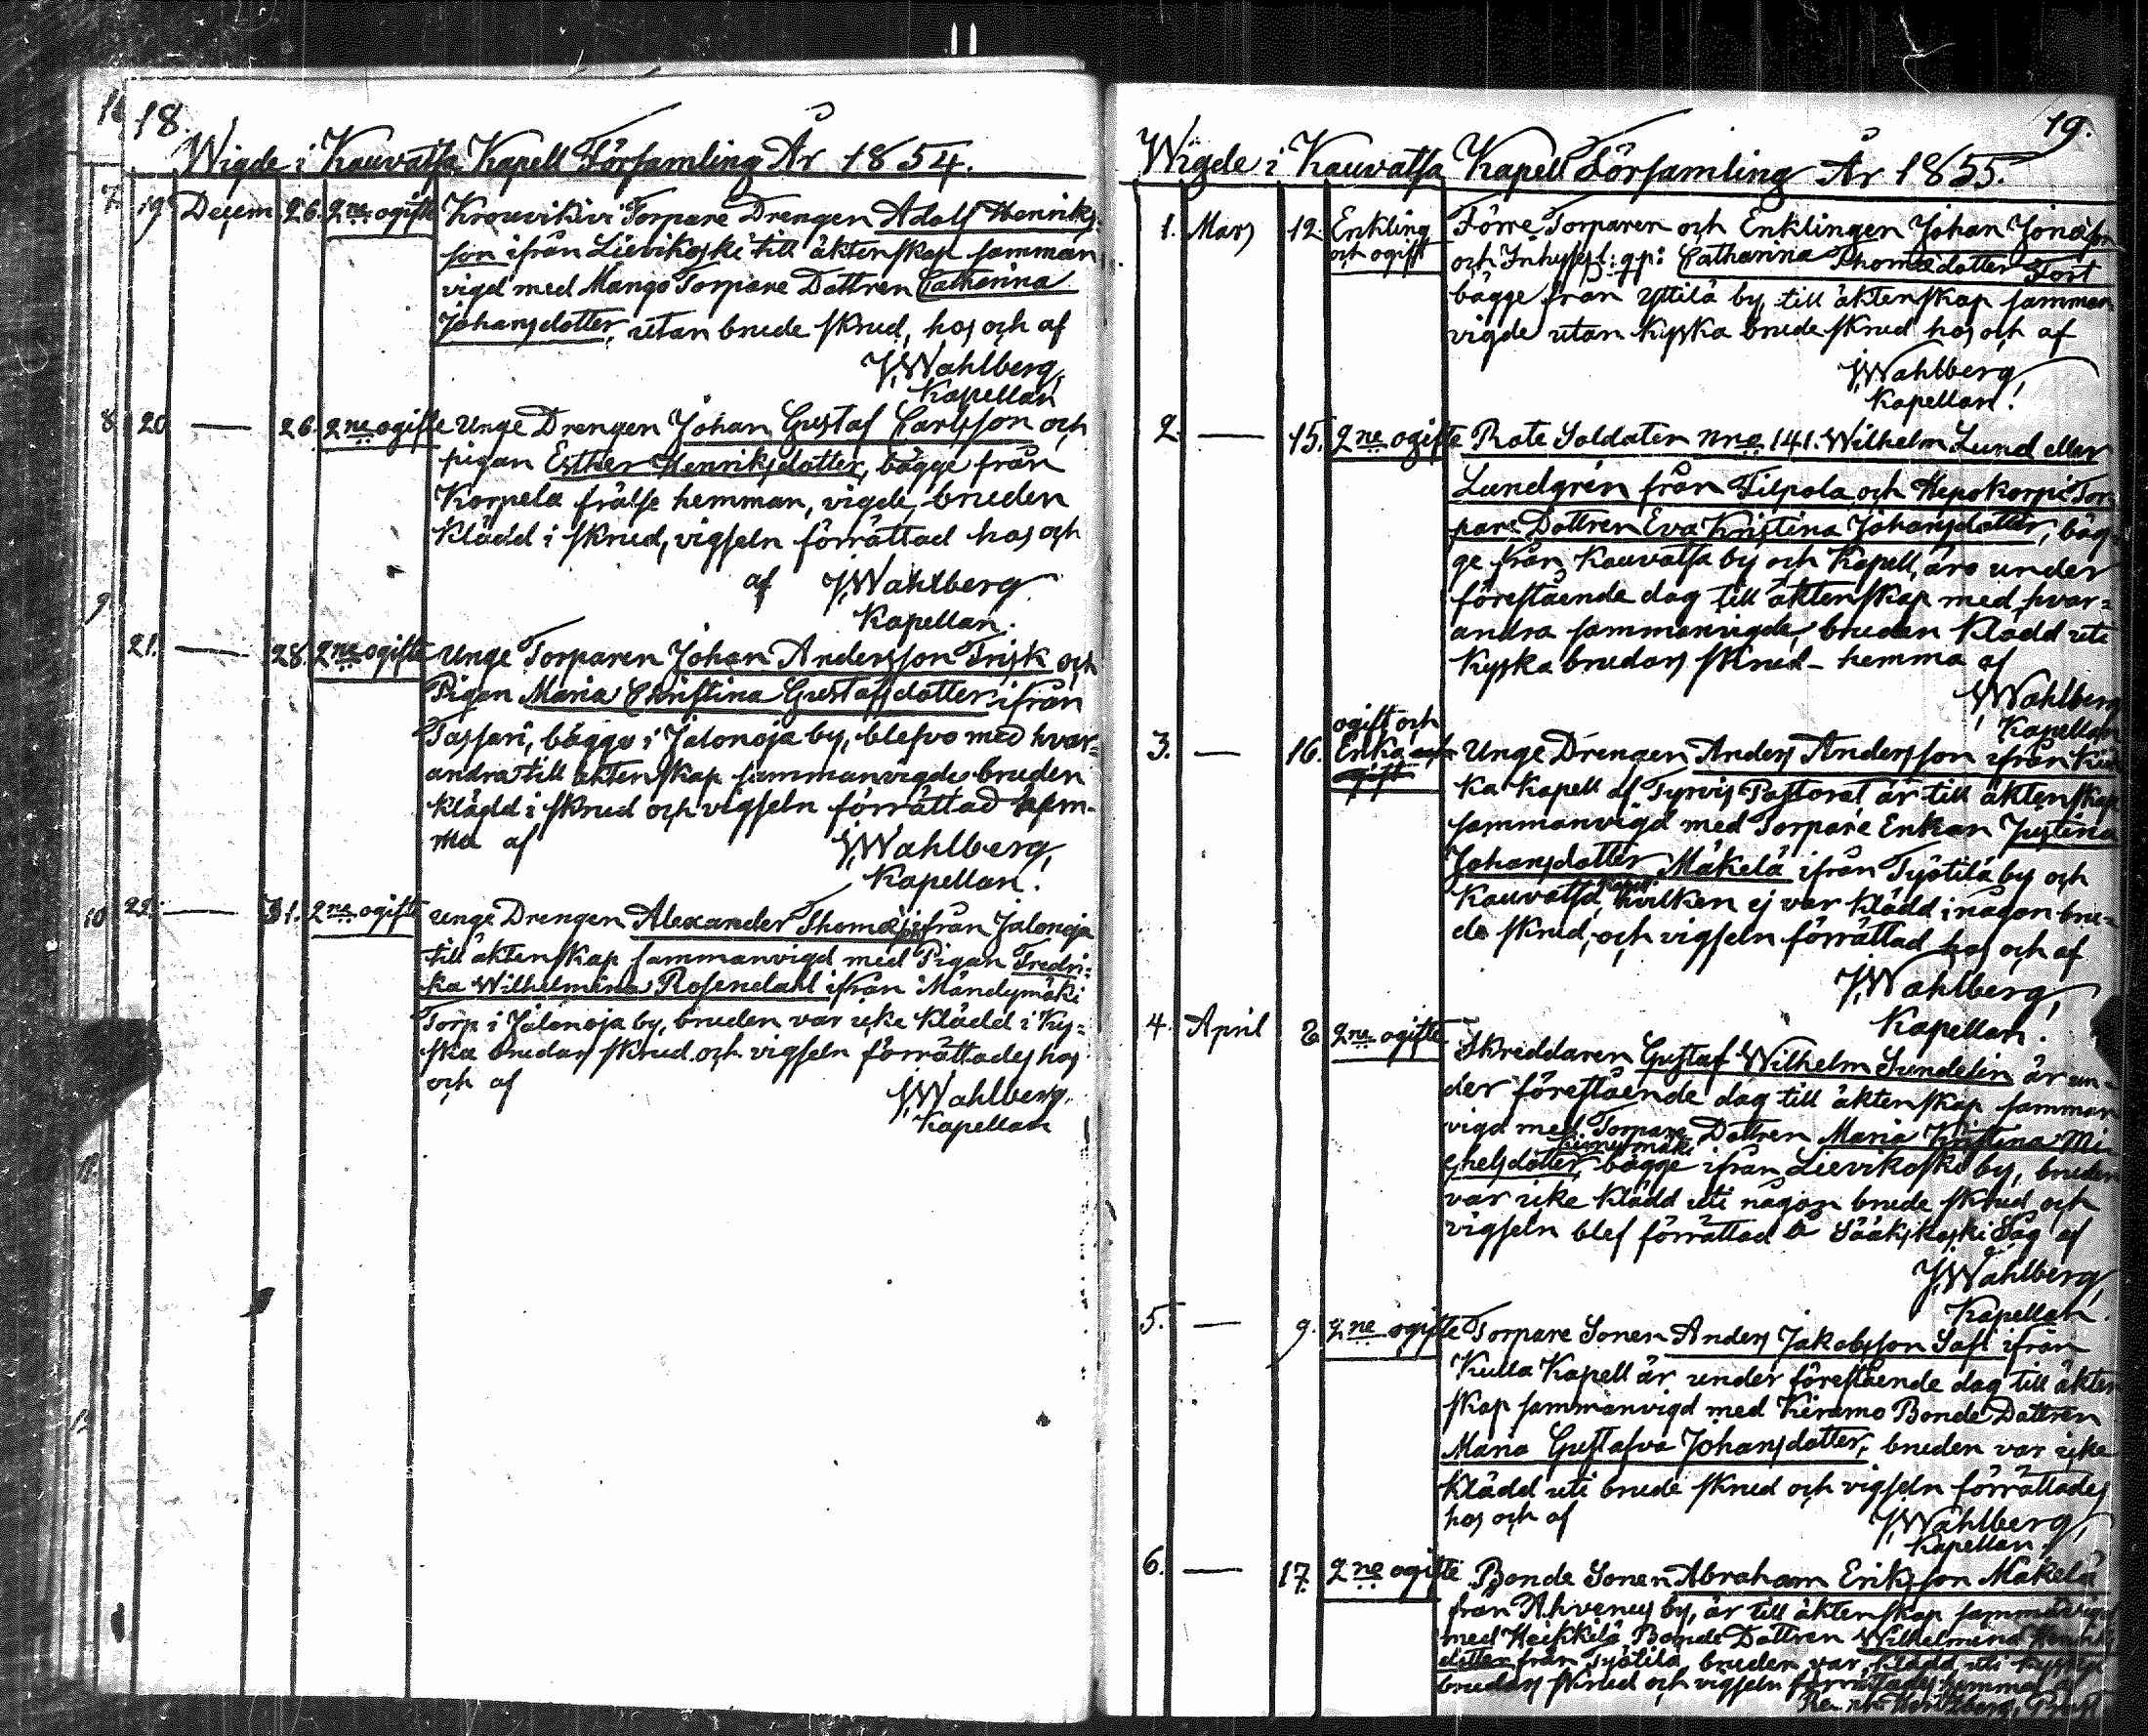 18.
Wigde i Kauvatsa Kapell Församling År 1854.
19 Decem 26. 2ne ogifte Krouvikivi Torpare Drengen Adolf Henriks-
son ifrån Lievikoski till äktenskap samman
vigd med Mango Torpare Dottren Catharina
Johansdotter, utan brude skrud, hos och af
J. Wahlberg,
Kapellan
20 — 26. 2ne ogifte Unge Drengen Johan Gustaf Carlsson och
pigan Esther Henriksdotter, bägge från
Korpela frälse hemman, vigde, bruden
klädd i skrud, vigseln förrättad hos och
af J. Wahlberg
Kapellan.
21. — 28. 2ne ogifte Unge Torparen Johan Andersson Frisk och
Pigan Maria Christina Gustafsdotter ifrån
Tassari, bägge i Jalonoja by, blefvo med hvar=
andra till äktenskap sammanvigde bruden
klädd i skrud och vigseln förrättad hem-
ma af J. Wahlberg,
Kapellan.
22. — 31. 2ne ogifte Unge Drengen Alexander Thomæsson ifrån Jalonoja
till äktenskap sammanvigd med Pigan Fredri=
ka Wilhelmina Rosendahl ifrån Mändymäki
Torp i Jalonoja by, bruden var icke klädd i Ky=
ska brudars skrud och vigseln förrättades hos
och af J. Wahlberg.
Kapellan
19.
Wigde i Kauvatsa Kapell Församling År 1855.
1. Mars 12. Enkling och ogift Förre Torparen och Enklingen Johan Jonasson
och Inhyses q.p: Catharina Thomædotter Tort
bägge från Yttilä by till äktenskap samman-
vigde utan Kyska brude skrud hos och af
J. Wahlberg,
Kapellan.
2. — 15. 2ne ogifte Rote Soldaten nro 141. Wilhelm Lund eller
Lundgrén från Tilpola och Hepokorpi Tor-
pare Dottren Eva Kristina Johansdotter, bäg-
ge från Kauvatsa by och Kapell, äro under
föreståends dag till äktenskap med hvar=
andra sammanvigde, bruden klädd uti
Kyska brudars skrud - hemma af
J. Wahlberg
Kapellan
3. — 16. ogift och Enka Unge Drengen Anders Andersson ifrån
ka Kapell af Tyrvis Pastorat är till äktenskap
sammanvigd med Torpare Enkan Justina
Johansdotter Mäkelä ifrån Työtilä by och
Kauvatsa Kapell hvilken ej var klädd i någon bru=
de skrud, och vigseln förrättad hos och af
J. Wahlberg,
Kapellan.
4. April 8. 2ne ogifte Skreddaren Gustaf Wilhelm Sundelin är un-
der förestående dag till äktenskap samman
vigd med Torpare Dottren Maria Kristina Mi-
chelsdotter, bägge ifrån Lievikoski by, bruden
var icke klädd uti någon brude skrud och
vigseln blef förrättad å Sääkskoski Såg af
J. Wahlberg,
Kapellan.
5. — 9. 2ne ogifte Torpare Sonen Anders Jakobsson Safi ifrån
Kulla Kapell är under förestående dag till äkten
skap sammanvigd med Kiramo Bonde Dottren
Maria Gustafva Johansdotter, bruden var icke
klädd uti brude skrud och vigseln förrättades
hos och af J. Wahlberg,
Kapellan.
6. — 17. 2ne ogifte Bonde Sonen Abraham Eriksson Mäkelä
från Ahvenus by, är till äktenskap sammanvigd
med Heikkilä Bonde Dottren Wilhelmina Henriks
dotter från Työtilä, bruden var klädd uti kyska
brudars skrud och vigseln förrättades hemma af